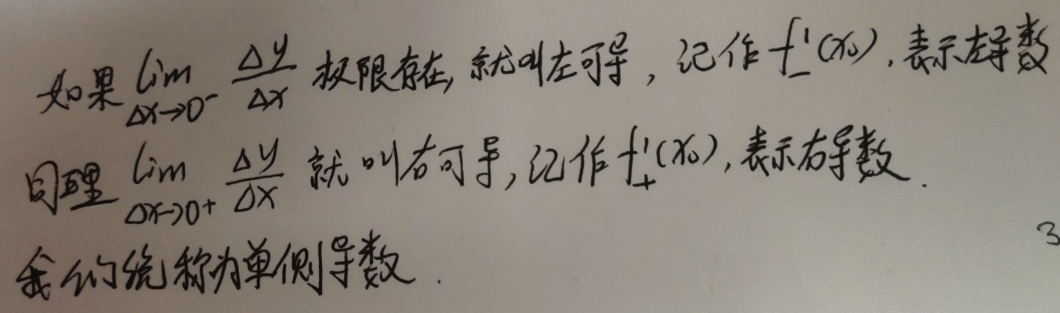 如果 lim Δx→0⁻ Δy/Δx 极限存在, 就叫左可导, 记作 f'₋(x₀), 表示左导数
同理 lim Δx→0⁺ Δy/Δx 就叫右可导, 记作 f'₊(x₀), 表示右导数.
我们统称为单侧导数.
3